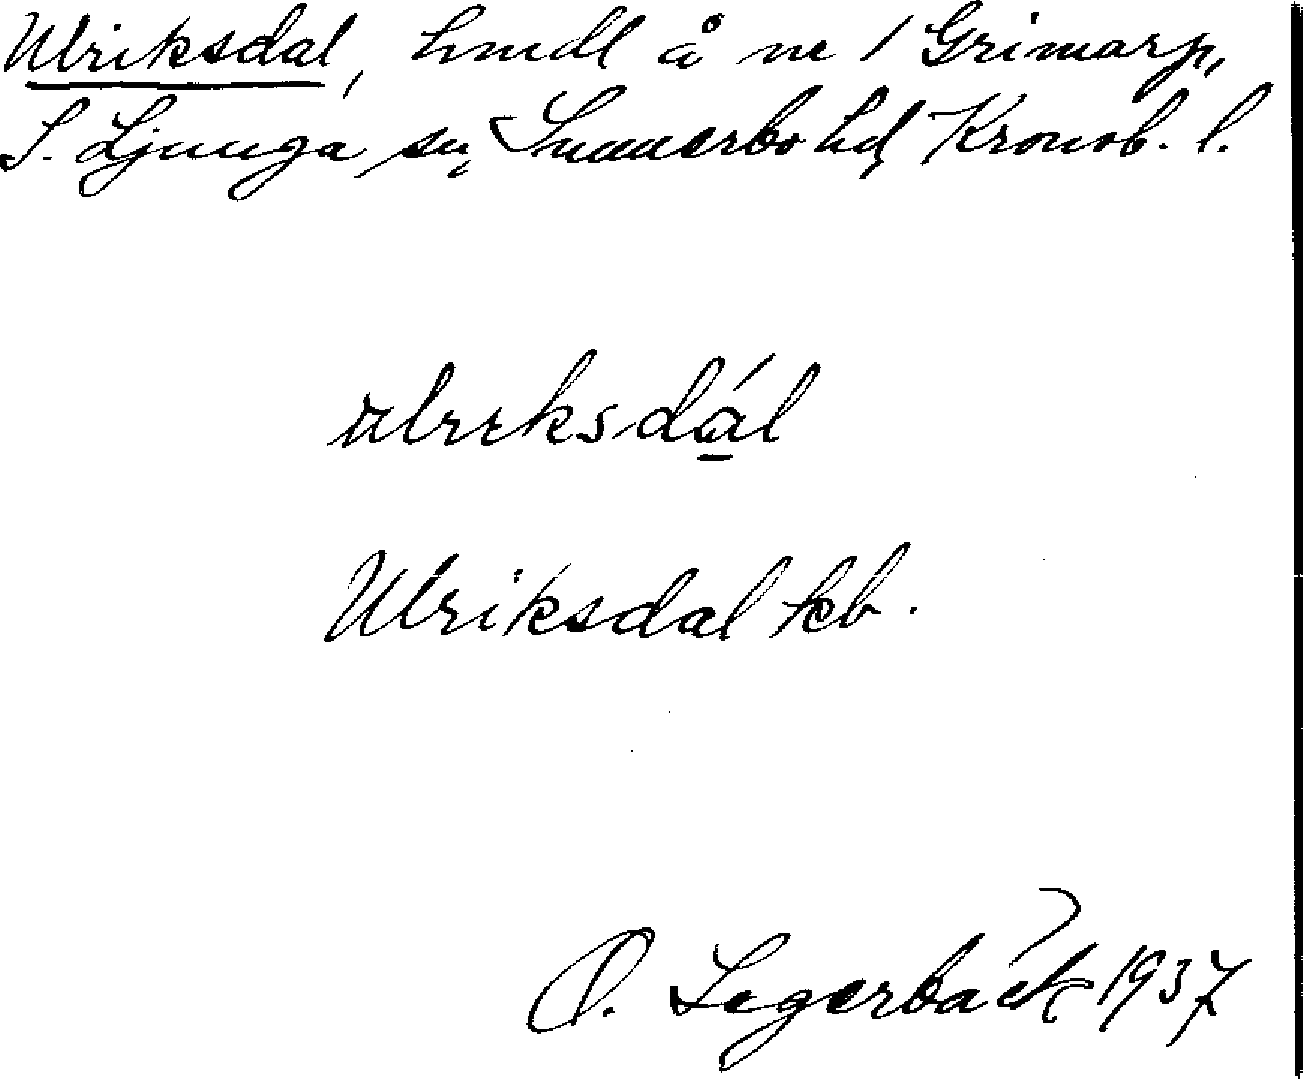 Ulriksdal, hmdl å nr 1 Grimarp,
S. Ljunga sn, Sunnerbo hd, Kronob. l.
ulrıksdál
Ulriksdal kb.
O. Legerbäck 1937